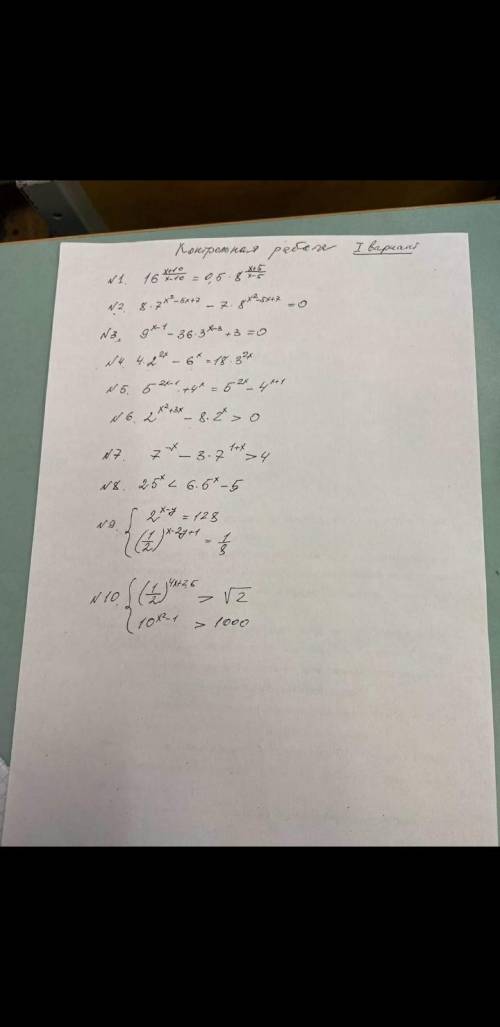 Контрольная работа I вариант
№1. 16^((x+10)/(x-10)) = 0,5 · 8^((x+5)/(x-5))
№2. 8·7^(x²-5x+7) - 7·8^(x²-5x+7) = 0
№3. 9^(x-1) - 36·3^(x-3) + 3 = 0
№4. 4·2^(2x) - 6^x = 18·3^(2x)
№5. 5^(2x-1) + 4^x = 5^(2x) - 4^(x+1)
№6. 2^(x²+3x) - 8·2^x > 0
№7. 7^(-x) - 3·7^(1+x) > 4
№8. 25^x < 6·5^x - 5
№9. { 2^(x-y) = 128
(1/2)^(x-2y+1) = 1/8
№10. { (1/2)^(4x+2,5) > √2
10^(x²-1) > 1000